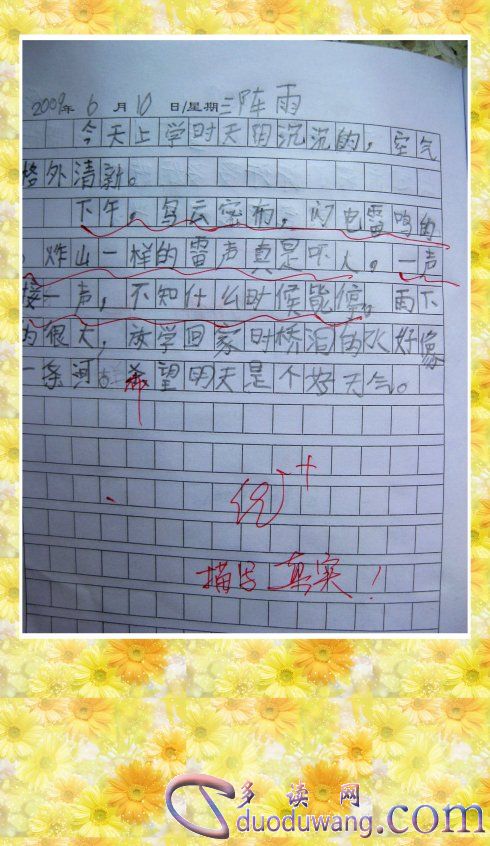 2009年 6 月 10 日/星期三 阵雨
今天上学时天阴沉沉的，空气
格外清新。
下午，乌云密布，闪电雷鸣的
，炸山一样的雷声真是吓人。一声
接一声，不知什么时候能停。雨下
的很大，放学回家时桥 的水好像
一条河。希望明天是个好天气。
优+
描写真实！
多读网
duoduwang.com